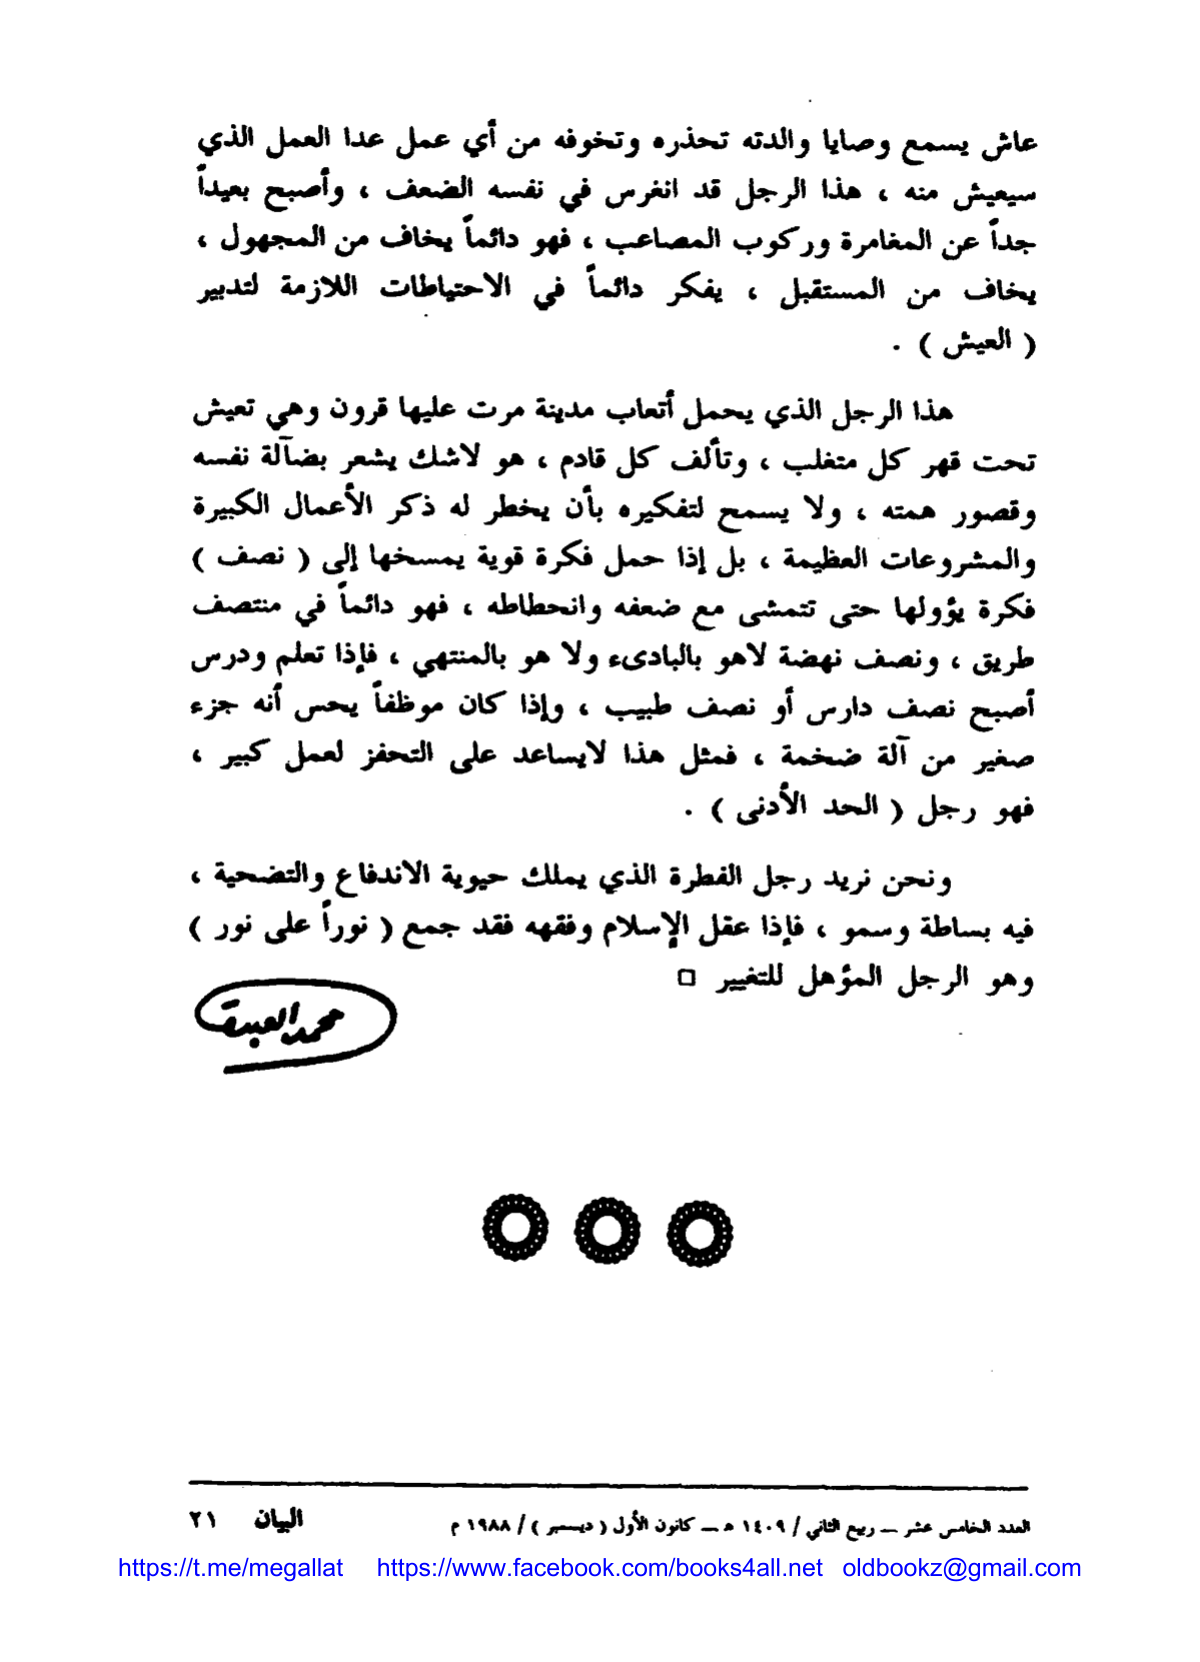 عاش يسمع وصايا والدته تحذره وتخوفه من أي عمل عدا العمل الذي
سيعيش منه ، هذا الرجل قد انغرس في نفسه الضعف ، وأصبح بعيداً
جداً عن المغامرة وركوب المصاعب ، فهو دائماً يخاف من المجهول ،
يخاف من المستقبل ، يفكر دائماً في الاحتياطات اللازمة لتدبير
( العيش ) .
هذا الرجل الذي يحمل أتعاب مدينة مرت عليها قرون وهي تعيش
تحت قهر كل متغلب ، وتألف كل قادم ، هو لاشك يشعر بضآلة نفسه
وقصور همته ، ولا يسمح لتفكيره بأن يخطر له ذكر الأعمال الكبيرة
والمشروعات العظيمة ، بل إذا حمل فكرة قوية يمسخها إلى ( نصف )
فكرة يؤولها حتى تتمشى مع ضعفه وانحطاطه ، فهو دائماً في منتصف
طريق ، ونصف نهضة لاهو بالبادىء ولا هو بالمنتهي ، فإذا تعلم ودرس
أصبح نصف دارس أو نصف طبيب ، وإذا كان موظفاً يحس أنه جزء
صغير من آلة ضخمة ، فمثل هذا لايساعد على التحفز لعمل كبير ،
فهو رجل ( الحد الأدنى ) .
ونحن نريد رجل الفطرة الذي يملك حيوية الاندفاع والتضحية ،
فيه بساطة وسمو ، فإذا عقل الإسلام وفقهه فقد جمع ( نوراً على نور )
وهو الرجل المؤهل للتغيير □
محمد العبدة
العدد الخامس عشر ــ ربيع الثاني / ١٤٠٩ هـ ــ كانون الأول ( ديسمبر ) / ١٩٨٨ م البيان ٢١
https://t.me/megallat https://www.facebook.com/books4all.net oldbookz@gmail.com